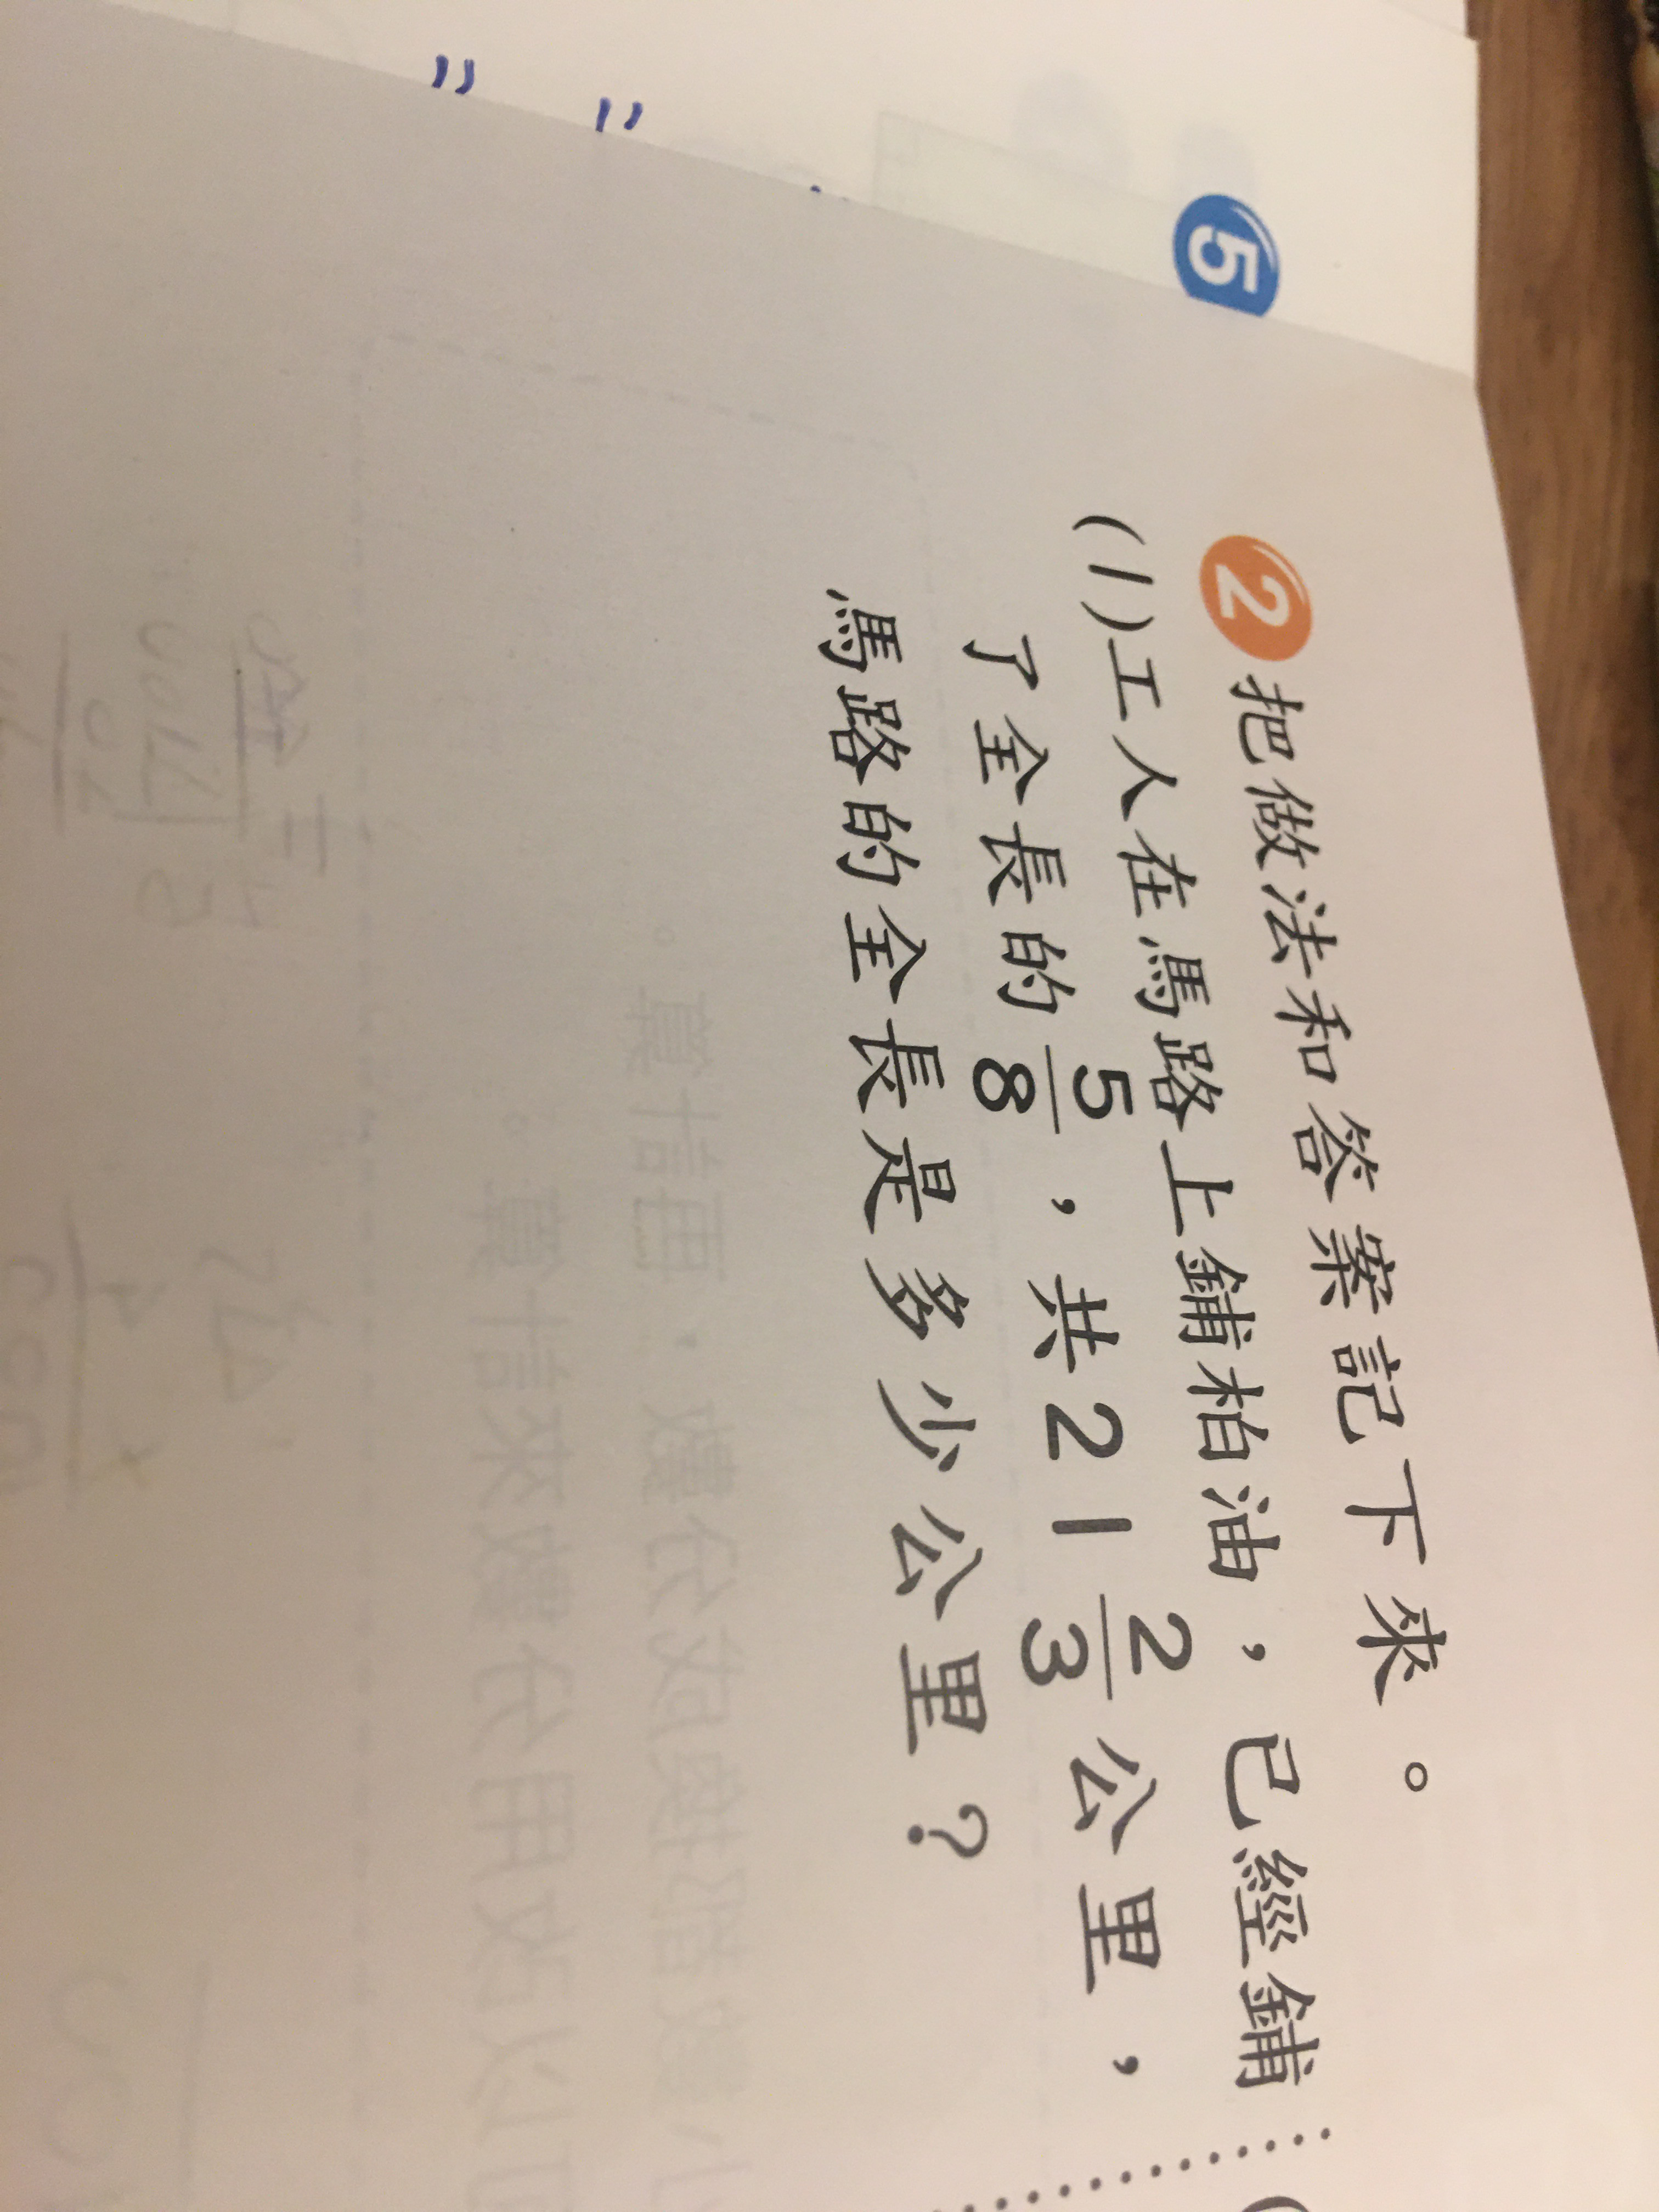 5
2 把做法和答案記下來。
(1)工人在馬路上鋪柏油，已經鋪
了全長的 5/8，共21 2/3 公里，
馬路的全長是多少公里？